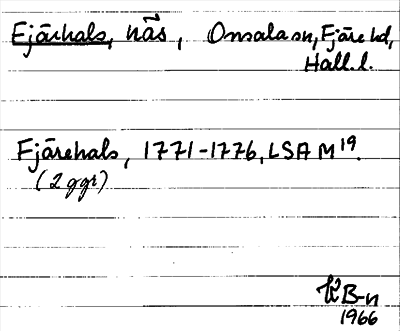 Fjärhals, näs, Onsala sn, Fjäre hd,
Hall. l.
Fjärehals, 1771-1776, LSA M19.
(2 ggr)
B-n
1966